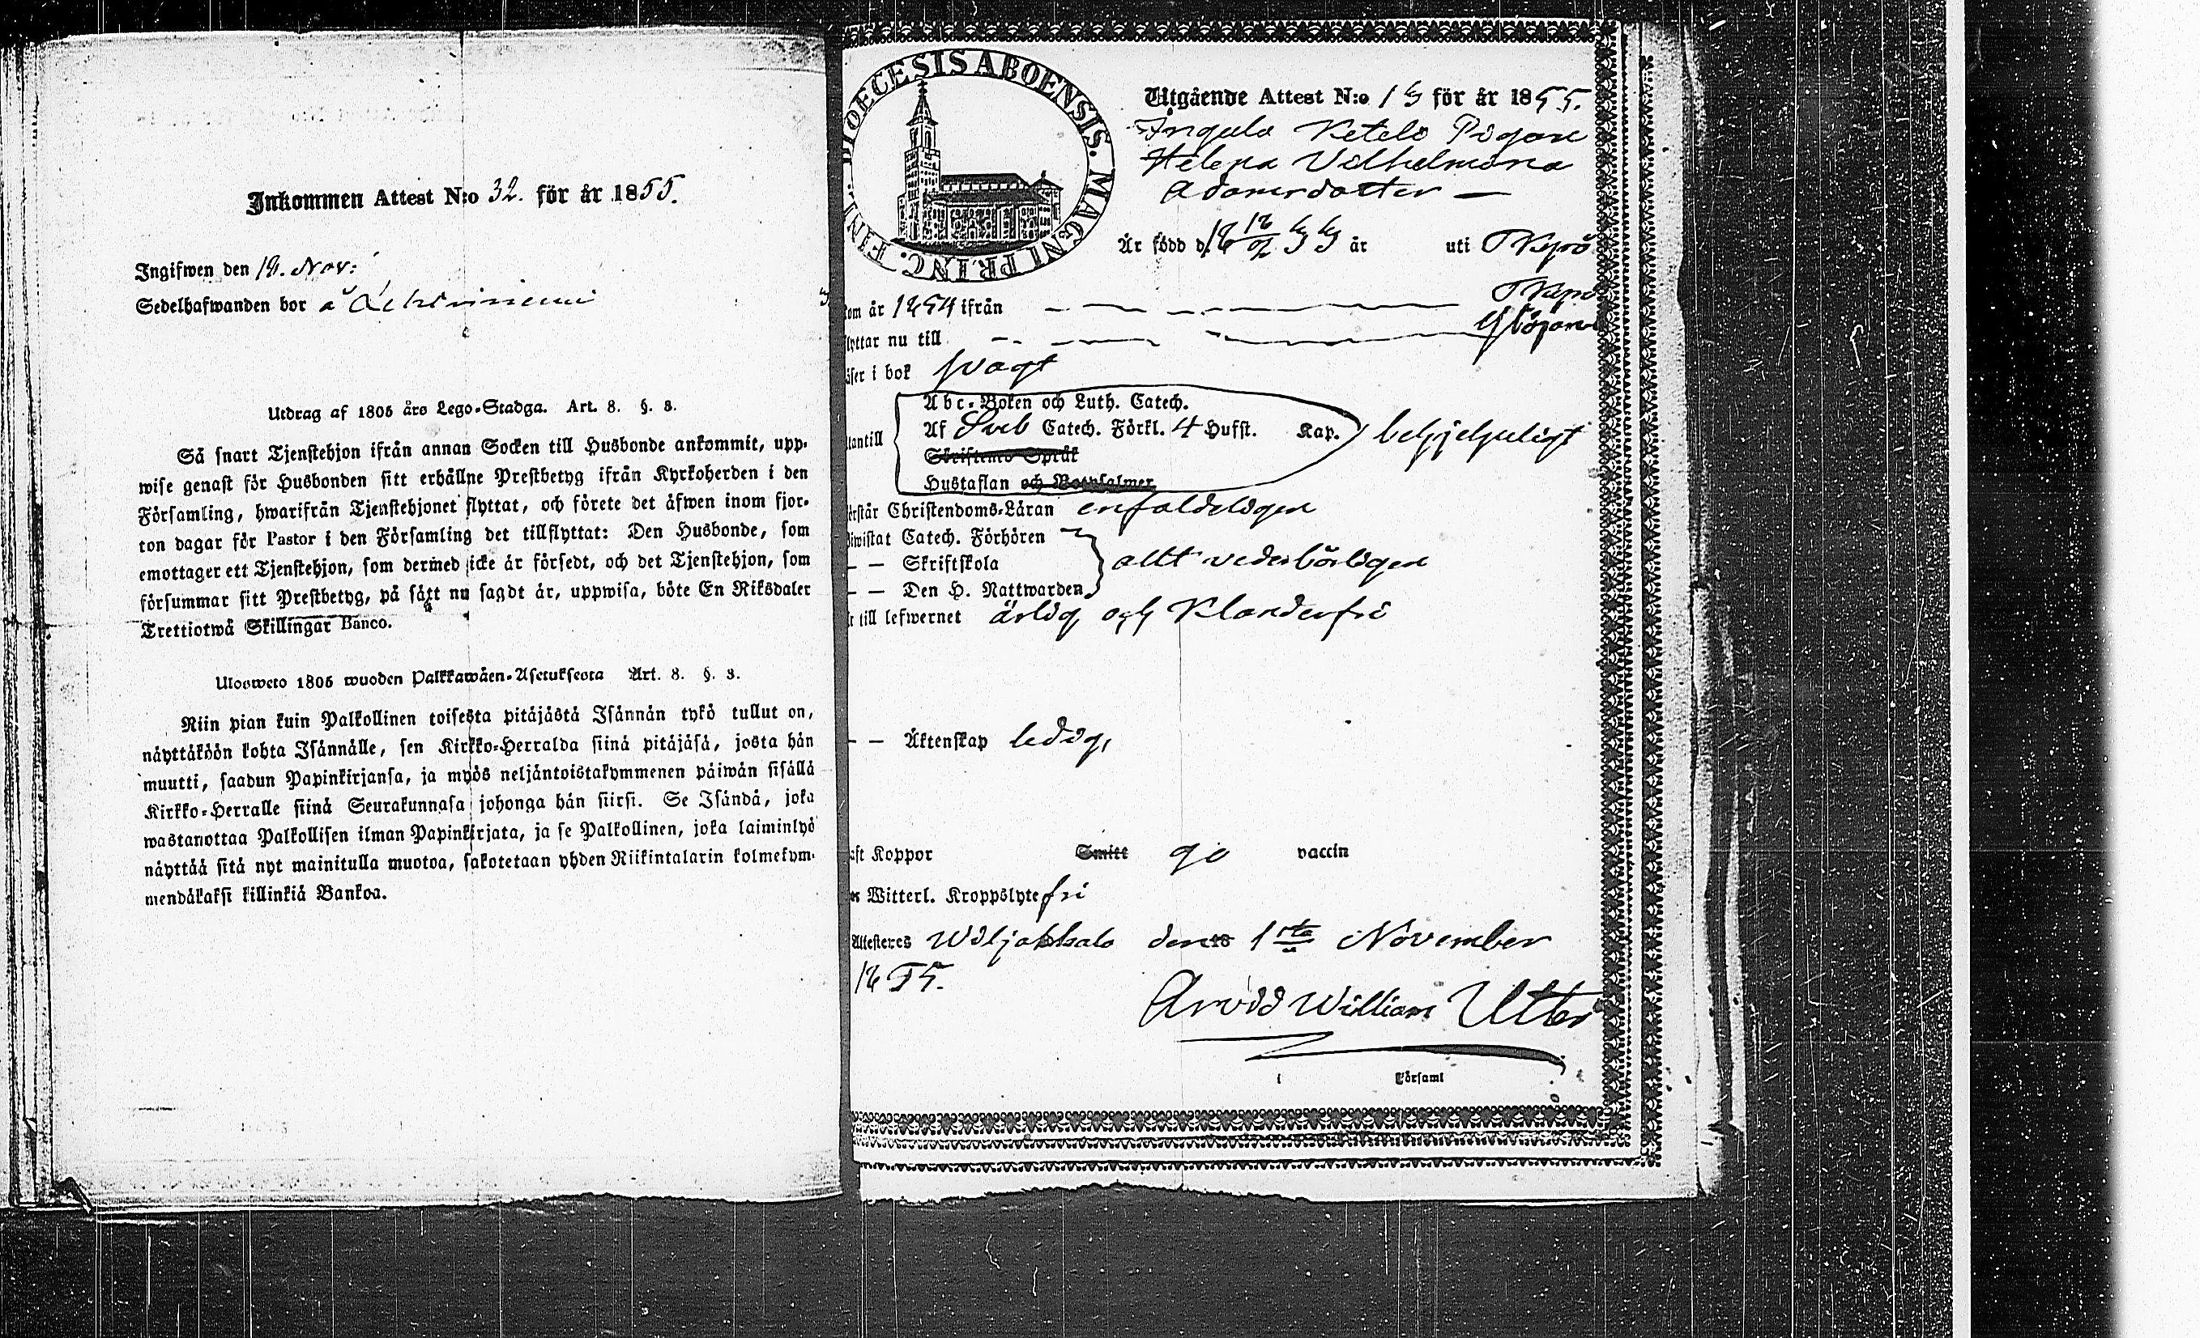 Inkommen Attest N:o 32. för år 1855.
Ingifwen den 18. Nov:
Sedelhafwanden bor å
Utdrag af 1805 års Lego-Stadga. Art. 8. §. 3.
Så snart Tjenstehjon ifrån annan Socken till Husbonde ankommit, upp-
wise genast för Husbonden sitt erhållne Prestbetyg ifrån Kyrkoherden i den
Församling, hwarifrån Tjenstehjonet flyttat, och förete det äfwen inom fjor-
ton dagar för Pastor i den Församling det tillflyttat: Den Husbonde, som
emottager ett Tjenstehjon, som dermed icke är försedt, och det Tjenstehjon, som
försummar sitt Prestbetyg, på sätt nu sagdt är, uppwisa, böte En Riksdaler
Trettiotwå Skillingar Banco.
Ulosweto 1805 wuoden Palkkawäen-Asetuksesta Art. 8. §. 3.
Niin pian kuin Palkollinen toisesta pitäjästä Isännän tykö tullut on,
näyttäköön kohta Isännälle, sen Kirkko-Herralda siinä pitäjäsä, josta hän
muutti, saadun Papinkirjansa, ja myös neljäntoistakymmenen päiwän sisällä
Kirkko-Herralle siinä Seurakunnasa johonga hän siirsi. Se Isändä, joka
wastanottaa Palkollisen ilman Papinkirjata, ja se Palkollinen, joka laiminlyö
näyttää sitä nyt mainitulla muotoa, sakotetaan yhden Riikintalarin kolmekym-
mendäkaksi killinkiä Bankoa.
DIOECESIS ABOENSIS. MAGNI PRINC. FINL.
Utgående Attest N:o för år 1855.
Ketels Pigan
Helena Vilhelmina
Adamsdotter —
Är född d. är uti
om år 1854 ifrån
lyttar nu till
äser i bok svagt
Abc-Boken och Luth. Catech.
antill Af Sveb Catech. Förkl. 4 Hufst. Kap. behjelpeligt
Christendoms Språk
Hustaflan och Botpsalmer
örstår Christendoms-Läran enfaldeligen
iwistat Catech. Förhören
— — Skriftskola allt vederbörligen
— — Den H. Nattwarden
r till lefwernet ärlig och klanderfri
— — Äktenskap ledig,
aft Koppor Smitt ge vaccin
Witterl. Kroppslyte fri
Attesteres Wiljakkala den 1sta November
1855.
Arvid William Utter
i Församl